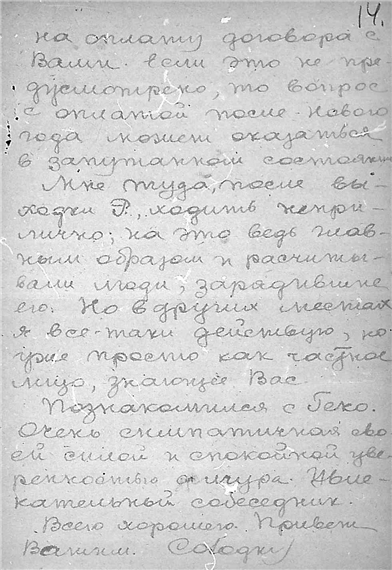 14.
на оплату договора с
Вами. если это не пре-
дусмотрено, то вопрос
с оплатой после нового
года может оказаться
в запутанном состоянии
Мне туда, после вы-
ходки Р., ходить непри-
лично; на это ведь глав-
ным образом и расчиты-
вали люди, зарядившие
его. Но в других местах
я все-таки действую, но
уже просто как частное
лицо, знающее Вас.
Познакомился с Геко.
Очень симпатичная сво-
ей силой и спокойной уве-
ренностью фигура. Увле-
кательный собеседник.
Всего хорошего. Привет
Вашим.